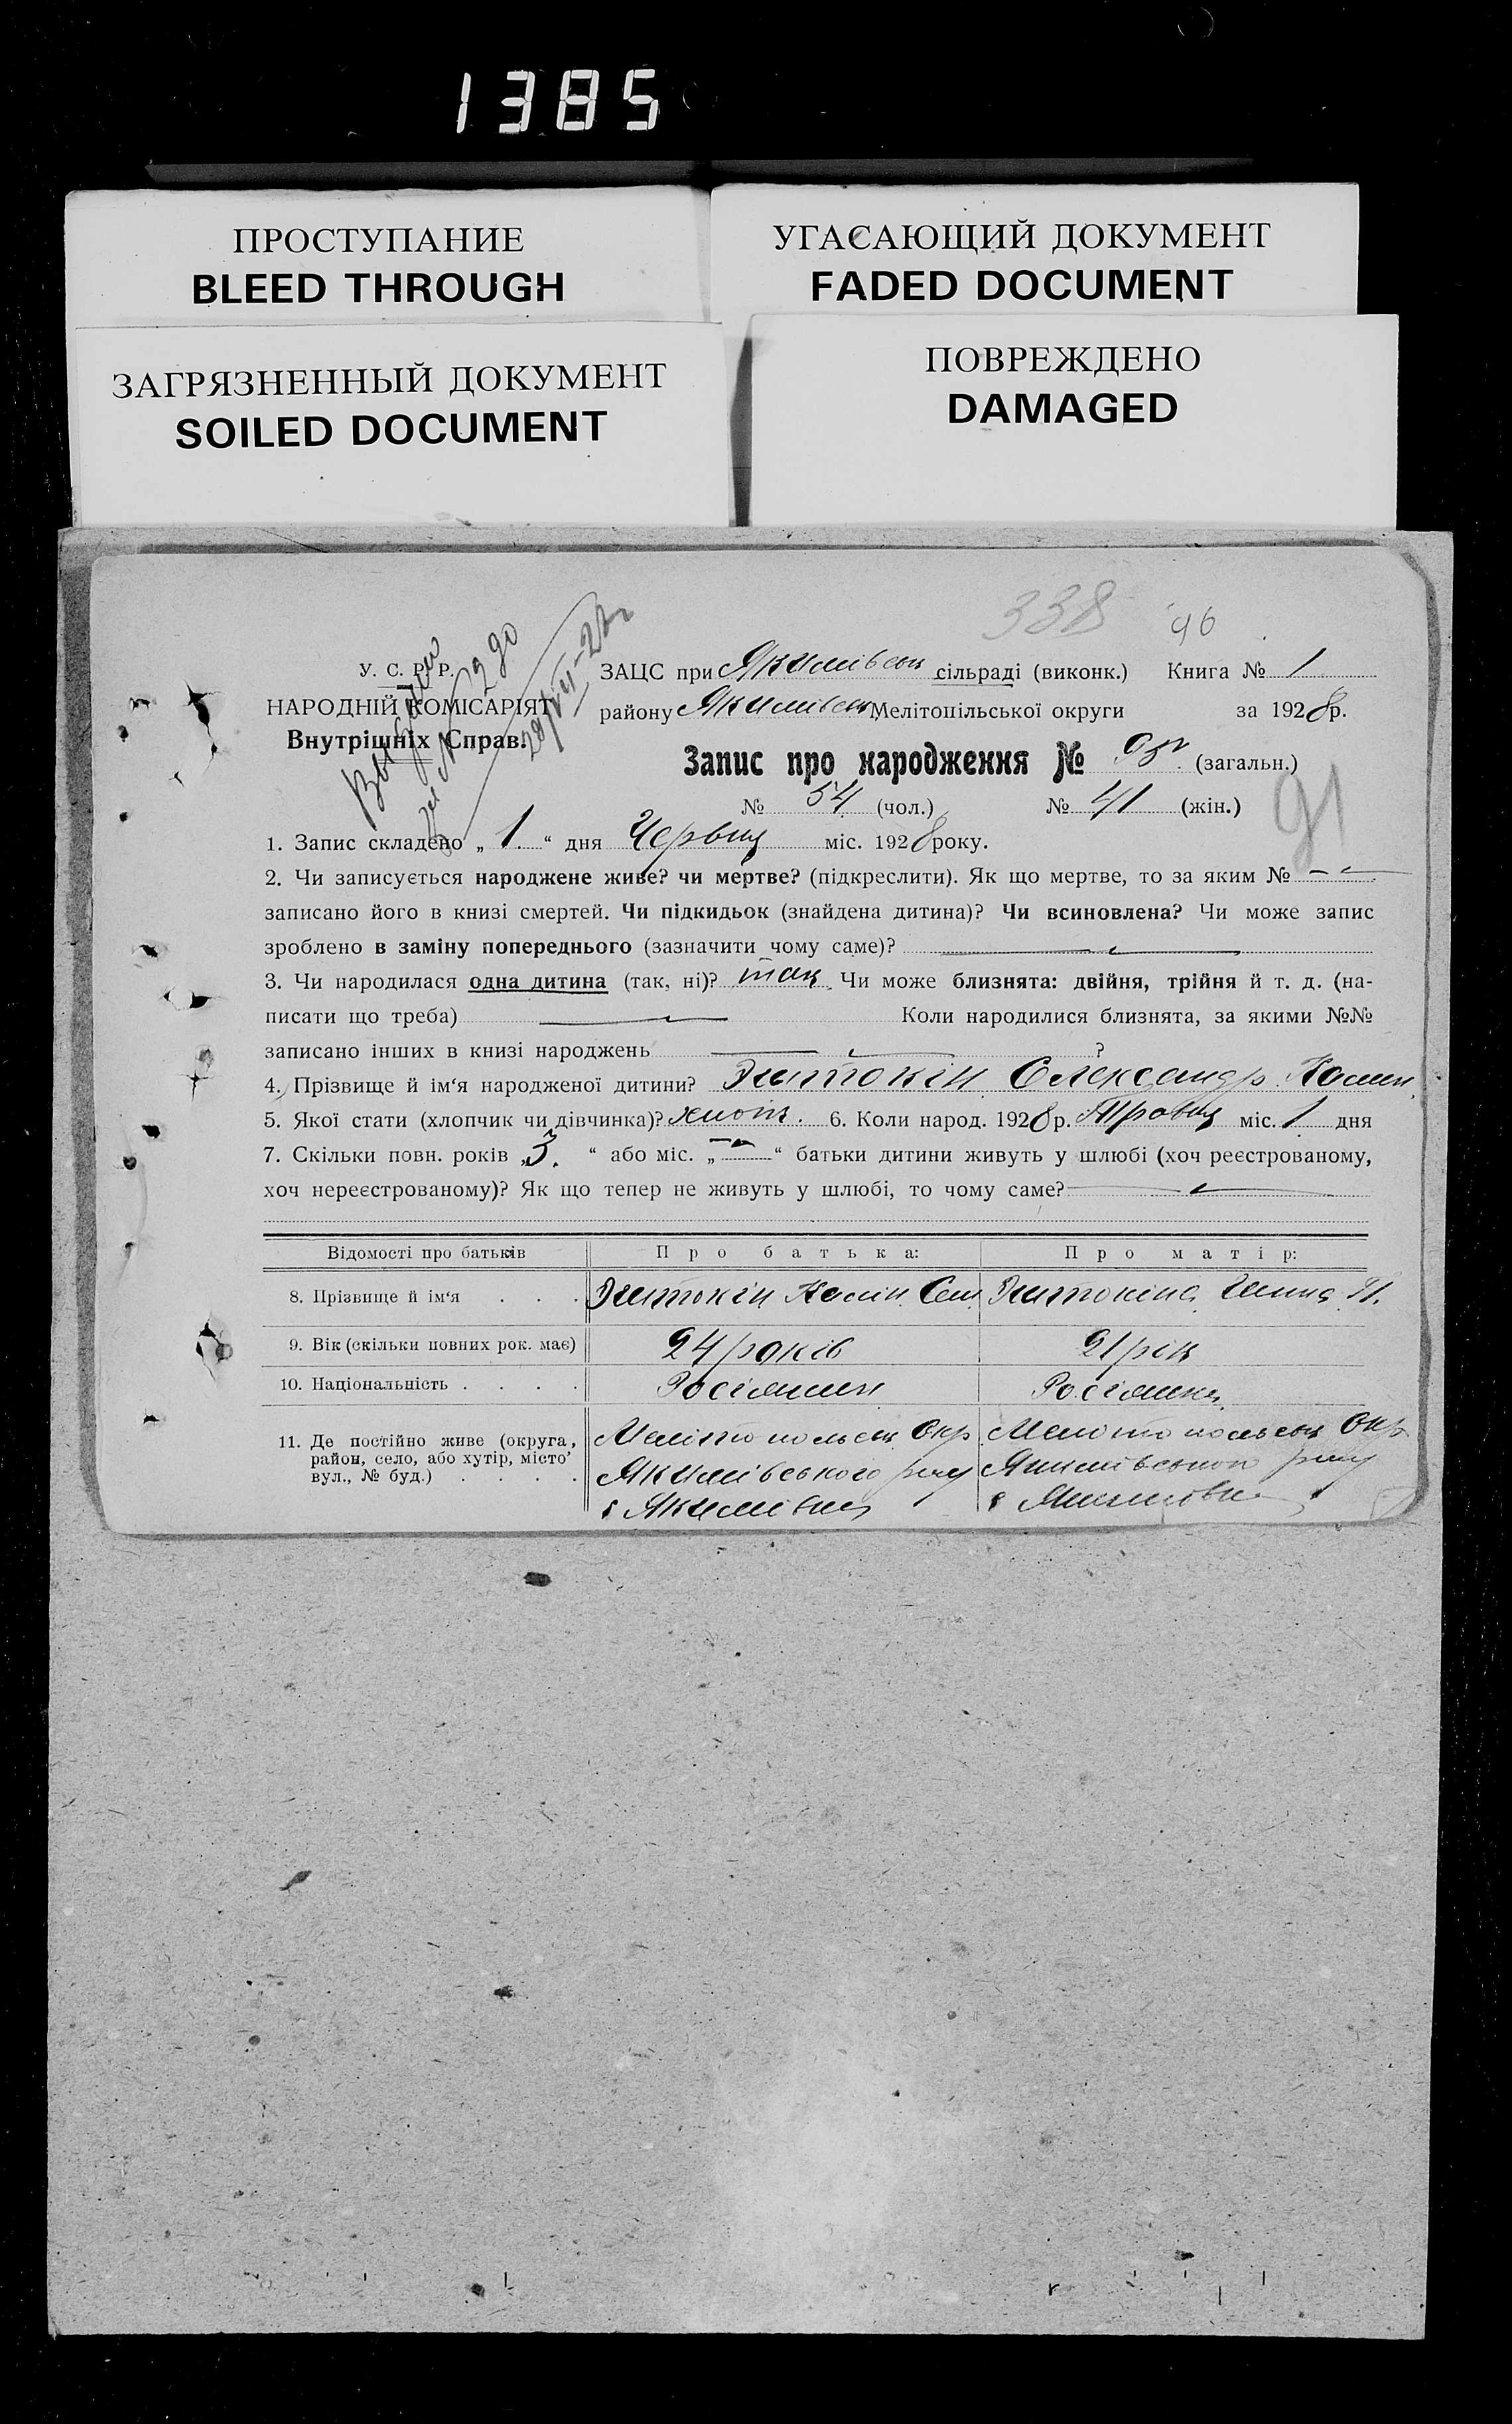 1385
ПРОСТУПАНИЕ
BLEED THROUGH
УГАСАЮЩИЙ ДОКУМЕНТ
FADED DOCUMENT
ЗАГРЯЗНЕННЫЙ ДОКУМЕНТ
SOILED DOCUMENT
ПОВРЕЖДЕНО
DAMAGED
338 96
У. С. Р. Р.
НАРОДНІЙ КОМІСАРІЯТ
Внутрішніх Справ.
ЗАЦС при Якимівськ сільраді (виконк.) Книга № 1
району Якимівськ Мелітопільської округи за 1928 р.
Запис про народження № (загальн.)
№ 54 (чол.) № 41 (жін.)
91
1. Запис складено „ 1. “ дня Червця міс. 1928 року.
2. Чи записується народжене живе? чи мертве? (підкреслити). Як що мертве, то за яким № —
записано його в книзі смертей. Чи підкидьок (знайдена дитина)? Чи всиновлена? Чи може запис
зроблено в заміну попереднього (зазначити чому саме)? —
3. Чи народилася одна дитина (так, ні)? так. Чи може близнята: двійня, трійня й т. д. (на-
писати що треба) — Коли народилися близнята, за якими №№
записано інших в книзі народжень — ?
4. Прізвище й ім‘я народженої дитини? Олександр
5. Якої стати (хлопчик чи дівчинка)? хлопч. 6. Коли народ. 1928 р. Травця міс. 1 дня
7. Скільки повн. років „3. “ або міс. „ — “ батьки дитини живуть у шлюбі (хоч реєстрованому,
хоч нереєстрованому)? Як що тепер не живуть у шлюбі, то чому саме? —
Відомості про батьків Про батька: Про матір:
8. Прізвище й ім‘я . . .
9. Вік (скільки повних рок. має) 24 років 21 рік
10. Національність . . . . Росіянин Росіянка
11. Де постійно живе (округа, Мелітопольськ Окр Мелітопольськ Окр
район, село, або хутір, місто’ Якимівського р-ну Якимівського р-ну
вул., № буд.) . . . . с Якимівка с Якимівка